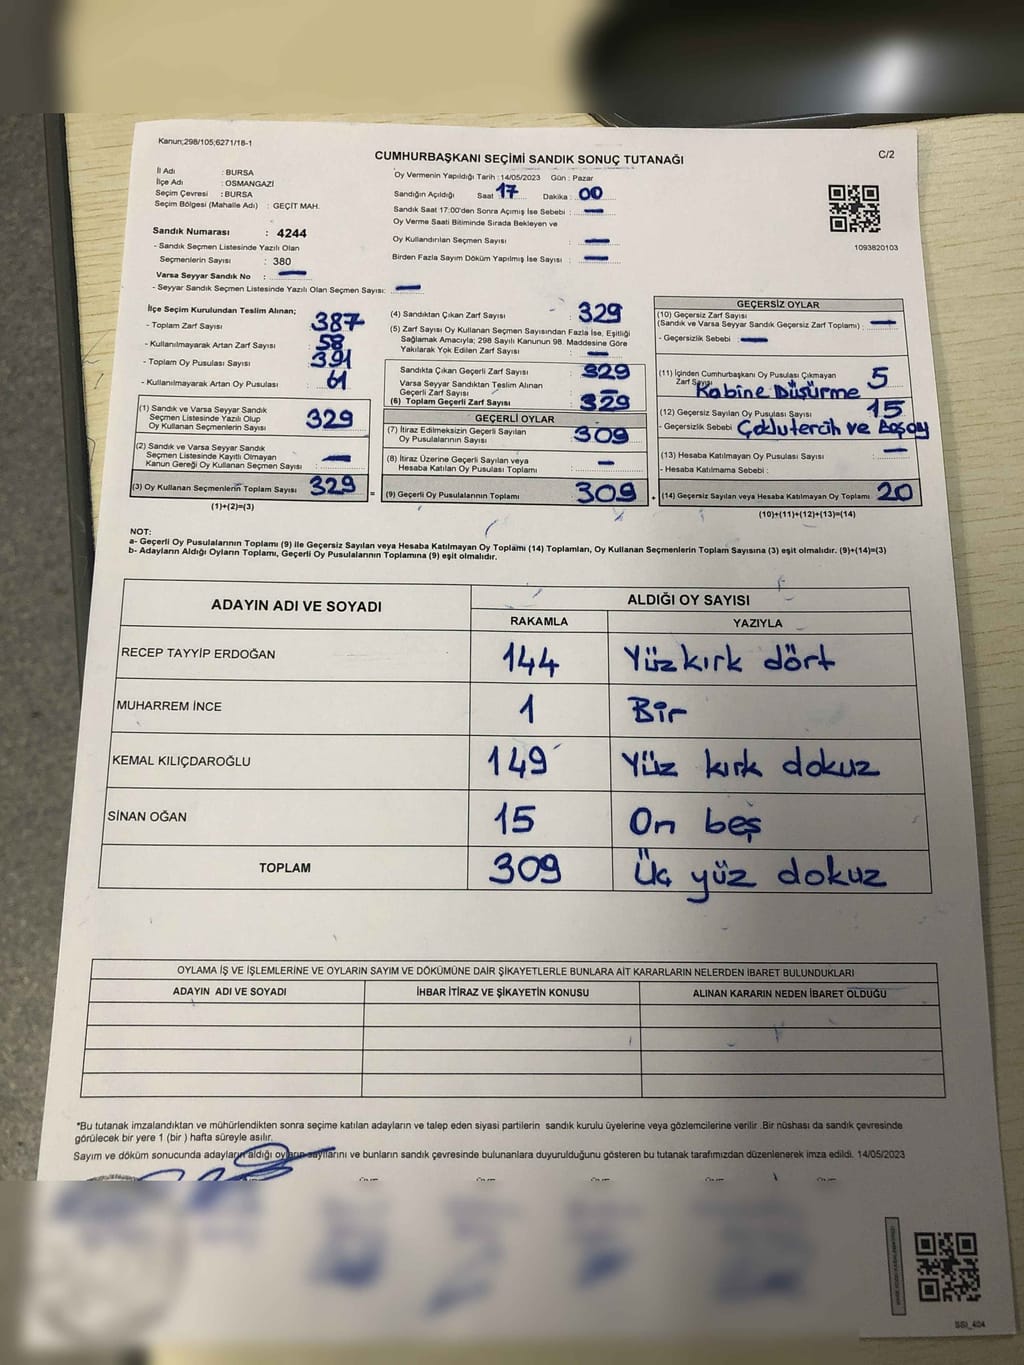 Kanun;298/105;6271/18-1
C/2
CUMHURBAŞKANI SEÇİMİ SANDIK SONUÇ TUTANAĞI
İl Adı : BURSA
İlçe Adı : OSMANGAZİ
Seçim Çevresi : BURSA
Seçim Bölgesi (Mahalle Adı) : GEÇİT MAH.
Sandık Numarası : 4244
- Sandık Seçmen Listesinde Yazılı Olan
Seçmenlerin Sayısı : 380
Varsa Seyyar Sandık No : —
- Seyyar Sandık Seçmen Listesinde Yazılı Olan Seçmen Sayısı: —
Oy Vermenin Yapıldığı Tarih : 14/05/2023 Gün : Pazar
Sandığın Açıldığı Saat 17 Dakika : 00
Sandık Saat 17:00'den Sonra Açımış İse Sebebi : —
Oy Verme Saati Bitiminde Sırada Bekleyen ve
Oy Kullandırılan Seçmen Sayısı : —
Birden Fazla Sayım Döküm Yapılmış İse Sayısı : —
1093820103
İlçe Seçim Kurulundan Teslim Alınan;
- Toplam Zarf Sayısı : 387
- Kullanılmayarak Artan Zarf Sayısı : 58
- Toplam Oy Pusulası Sayısı : 391
- Kullanılmayarak Artan Oy Pusulası : 61
(1) Sandık ve Varsa Seyyar Sandık
Seçmen Listesinde Yazılı Olup
Oy Kullanan Seçmenlerin Sayısı : 329
(2) Sandık ve Varsa Seyyar Sandık
Seçmen Listesinde Kayıtlı Olmayan
Kanun Gereği Oy Kullanan Seçmen Sayısı : —
(3) Oy Kullanan Seçmenlerin Toplam Sayısı : 329
(1)+(2)=(3)
=
(4) Sandıktan Çıkan Zarf Sayısı : 329
(5) Zarf Sayısı Oy Kullanan Seçmen Sayısından Fazla İse, Eşitliği
Sağlamak Amacıyla; 298 Sayılı Kanunun 98. Maddesine Göre
Yakılarak Yok Edilen Zarf Sayısı : —
Sandıkta Çıkan Geçerli Zarf Sayısı : 329
Varsa Seyyar Sandıktan Teslim Alınan
Geçerli Zarf Sayısı : —
(6) Toplam Geçerli Zarf Sayısı : 329
GEÇERLİ OYLAR
(7) İtiraz Edilmeksizin Geçerli Sayılan
Oy Pusulalarının Sayısı : 309
(8) İtiraz Üzerine Geçerli Sayılan veya
Hesaba Katılan Oy Pusulası Toplamı : —
(9) Geçerli Oy Pusulalarının Toplamı : 309
+
GEÇERSİZ OYLAR
(10) Geçersiz Zarf Sayısı
(Sandık ve Varsa Seyyar Sandık Geçersiz Zarf Toplamı) : —
- Geçersizlik Sebebi : —
(11) İçinden Cumhurbaşkanı Oy Pusulası Çıkmayan
Zarf Sayısı : 5
Kabine Düşürme
(12) Geçersiz Sayılan Oy Pusulası Sayısı : 15
- Geçersizlik Sebebi Çoklutercih ve Boşoy
(13) Hesaba Katılmayan Oy Pusulası Sayısı : —
- Hesaba Katılmama Sebebi :
(14) Geçersiz Sayılan veya Hesaba Katılmayan Oy Toplamı : 20
(10)+(11)+(12)+(13)=(14)
NOT:
a- Geçerli Oy Pusulalarının Toplamı (9) ile Geçersiz Sayılan veya Hesaba Katılmayan Oy Toplamı (14) Toplamları, Oy Kullanan Seçmenlerin Toplam Sayısına (3) eşit olmalıdır. (9)+(14)=(3)
b- Adayların Aldığı Oyların Toplamı, Geçerli Oy Pusulalarının Toplamına (9) eşit olmalıdır.
ADAYIN ADI VE SOYADI
ALDIĞI OY SAYISI
RAKAMLA YAZIYLA
RECEP TAYYİP ERDOĞAN 144 Yüzkırk dört
MUHARREM İNCE 1 Bir
KEMAL KILIÇDAROĞLU 149 Yüz kırk dokuz
SİNAN OĞAN 15 On beş
TOPLAM 309 Üç yüz dokuz
OYLAMA İŞ VE İŞLEMLERİNE VE OYLARIN SAYIM VE DÖKÜMÜNE DAİR ŞİKAYETLERLE BUNLARA AİT KARARLARIN NELERDEN İBARET BULUNDUKLARI
ADAYIN ADI VE SOYADI İHBAR İTİRAZ VE ŞİKAYETİN KONUSU ALINAN KARARIN NEDEN İBARET OLDUĞU
*Bu tutanak imzalandıktan ve mühürlendikten sonra seçime katılan adayların ve talep eden siyasi partilerin sandık kurulu üyelerine veya gözlemcilerine verilir .Bir nüshası da sandık çevresinde
görülecek bir yere 1 (bir ) hafta süreyle asılır.
Sayım ve döküm sonucunda adayların aldığı oyların sayılarını ve bunların sandık çevresinde bulunanlara duyurulduğunu gösteren bu tutanak tarafımızdan düzenlenerek imza edildi. 14/05/2023
SSI_404